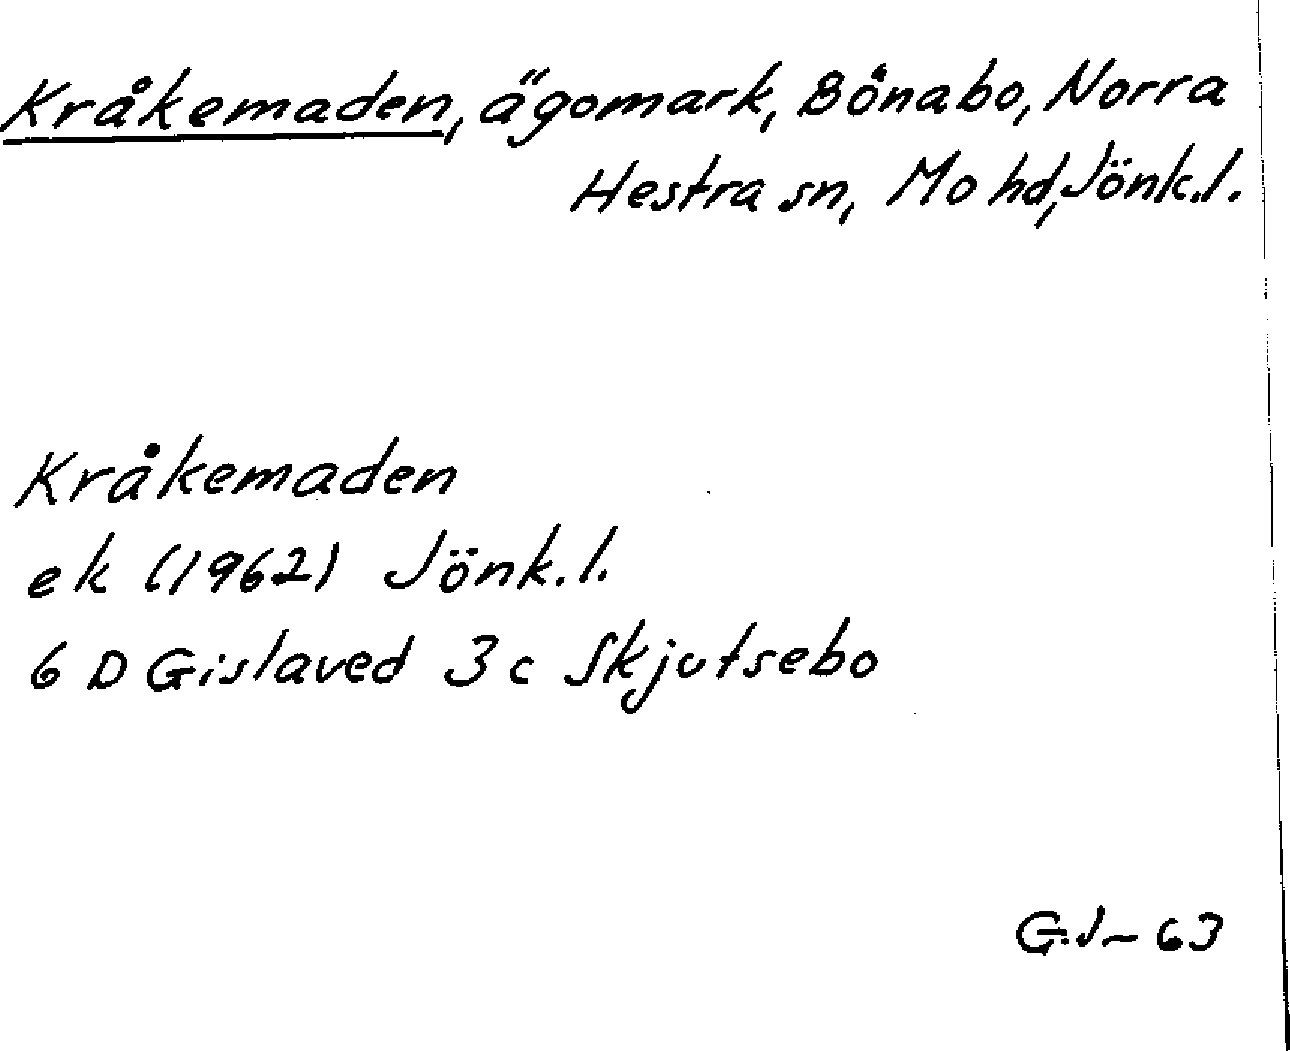 Kråkemaden, ägomark, Bånabo, Norra
Hestra sn, Mo hd, Jönk.l.
Kråkemaden
ek (1962) Jönk.l.
6 D Gislaved 3c Skjutsebo
G.J-63